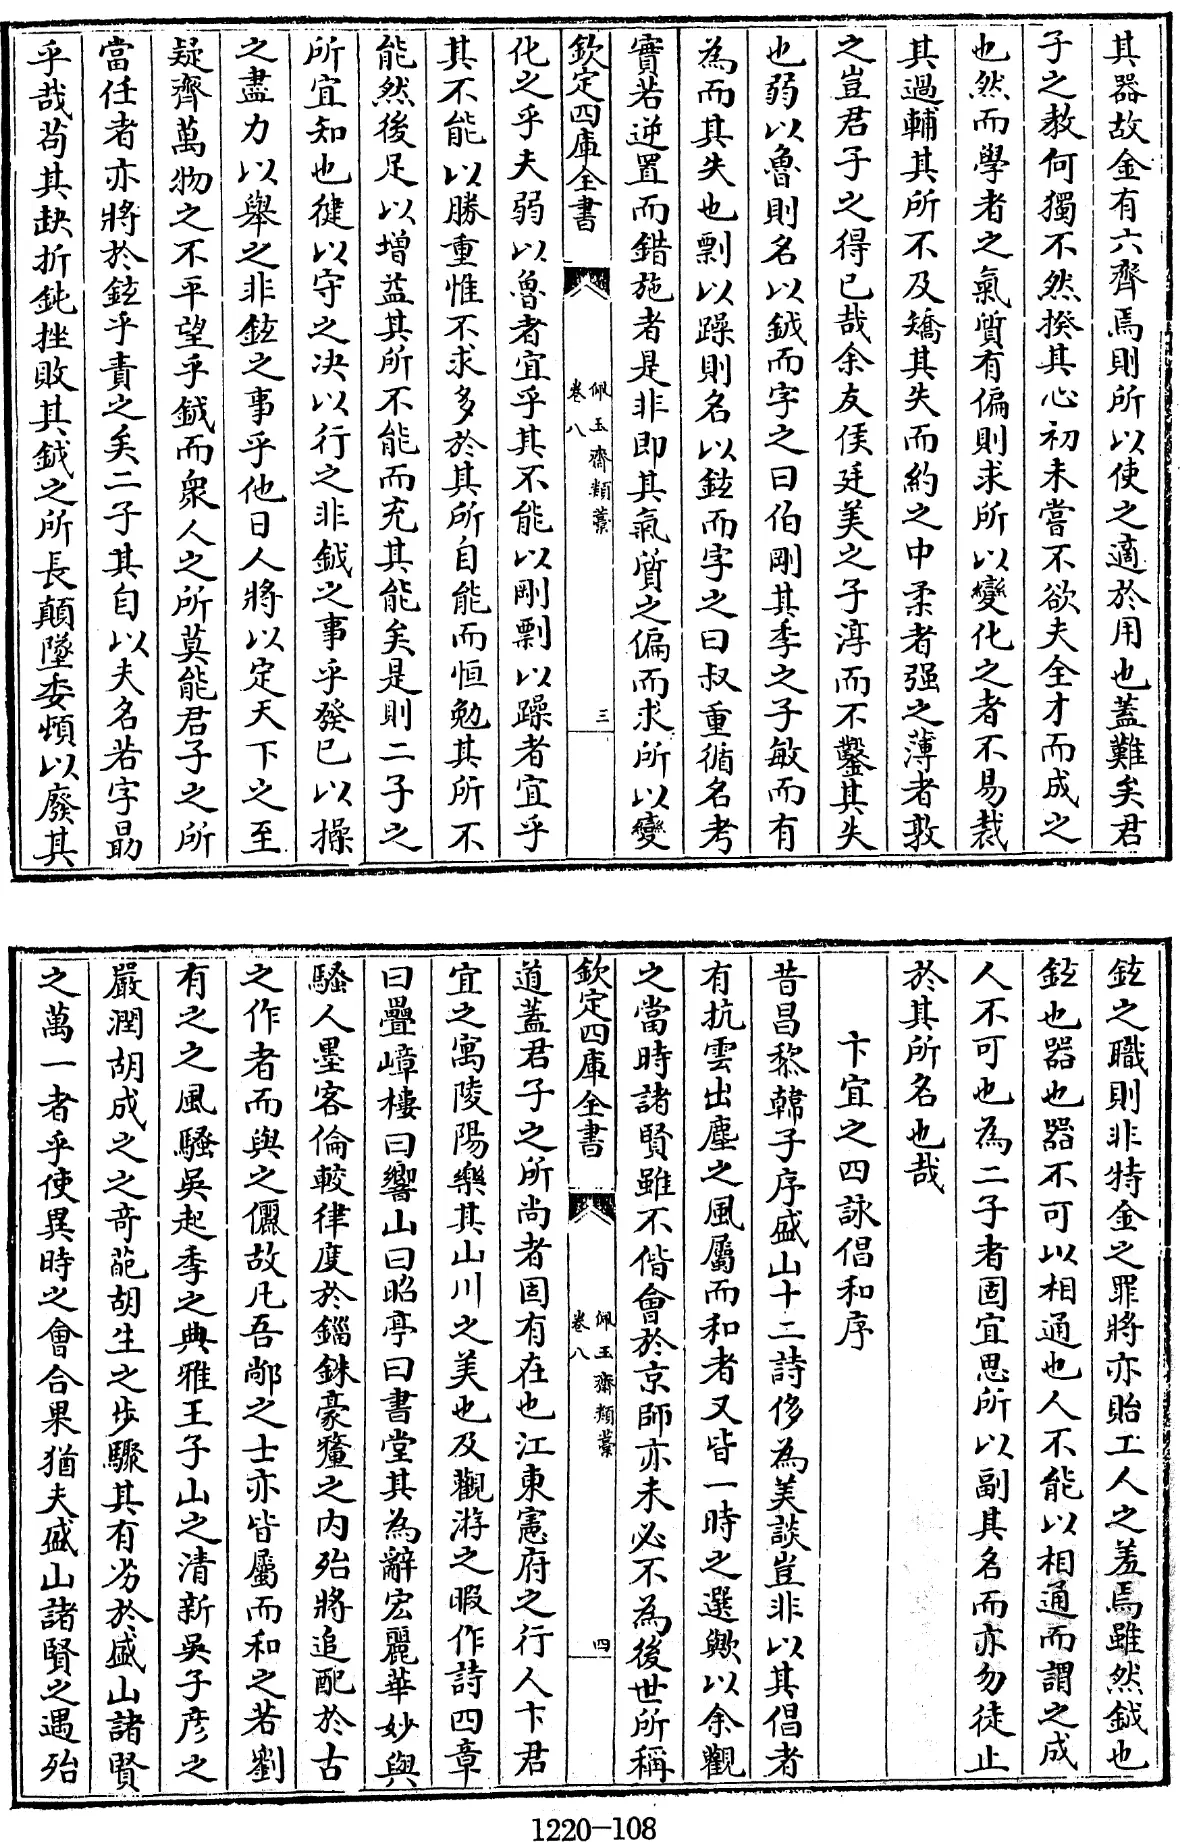 其器故金有六齊焉則所以使之適於用也蓋難矣君
子之教何獨不然揆其心初未嘗不欲夫全才而成之
也然而學者之氣質有偏則求所以變化之者不易裁
其過輔其所不及矯其失而約之中柔者强之薄者敦
之豈君子之得已哉余友侯廷美之子淳而不鑿其失
也弱以魯則名以鉞而字之曰伯剛其季之子敏而有
為而其失也剽以躁則名以鉉而字之曰叔重循名考
實若逆置而錯施者是非即其氣質之偏而求所以變
欽定四庫全書
佩玉齋類藁
卷八
三
化之乎夫弱以魯者宜乎其不能以剛剽以躁者宜乎
其不能以勝重惟不求多於其所自能而恒勉其所不
能然後足以增益其所不能而充其能矣是則二子之
所宜知也健以守之决以行之非鉞之事乎發已以操
之盡力以舉之非鉉之事乎他日人將以定天下之至
疑齊萬物之不平望乎鉞而衆人之所莫能君子之所
當任者亦將於鉉乎責之矣二子其自以夫名若字勗
乎哉苟其缺折鈍挫敗其鉞之所長顛墜委頓以廢其
鉉之職則非特金之罪將亦貽工人之羞焉雖然鉞也
鉉也器也器不可以相通也人不能以相通而謂之成
人不可也為二子者固宜思所以副其名而亦勿徒止
於其所名也哉
卞宜之四詠倡和序
昔昌黎韓子序盛山十二詩侈為美談豈非以其倡者
有抗雲出塵之風屬而和者又皆一時之選歟以余觀
之當時諸賢雖不偕會於京師亦未必不為後世所稱
欽定四庫全書
佩玉齋類藁
卷八
四
道蓋君子之所尚者固有在也江東憲府之行人卞君
宜之寓陵陽樂其山川之美也及觀游之暇作詩四章
曰疊嶂樓曰響山曰昭亭曰書堂其為辭宏麗華妙與
騷人墨客倫較律度於錙銖豪釐之内殆將追配於古
之作者而與之儷故凡吾鄰之士亦皆屬而和之若劉
有之之風騷吳起季之典雅王子山之清新吳子彦之
嚴潤胡成之之奇葩胡生之步驟其有劣於盛山諸賢
之萬一者乎使異時之會合果猶夫盛山諸賢之遇殆
1220-108